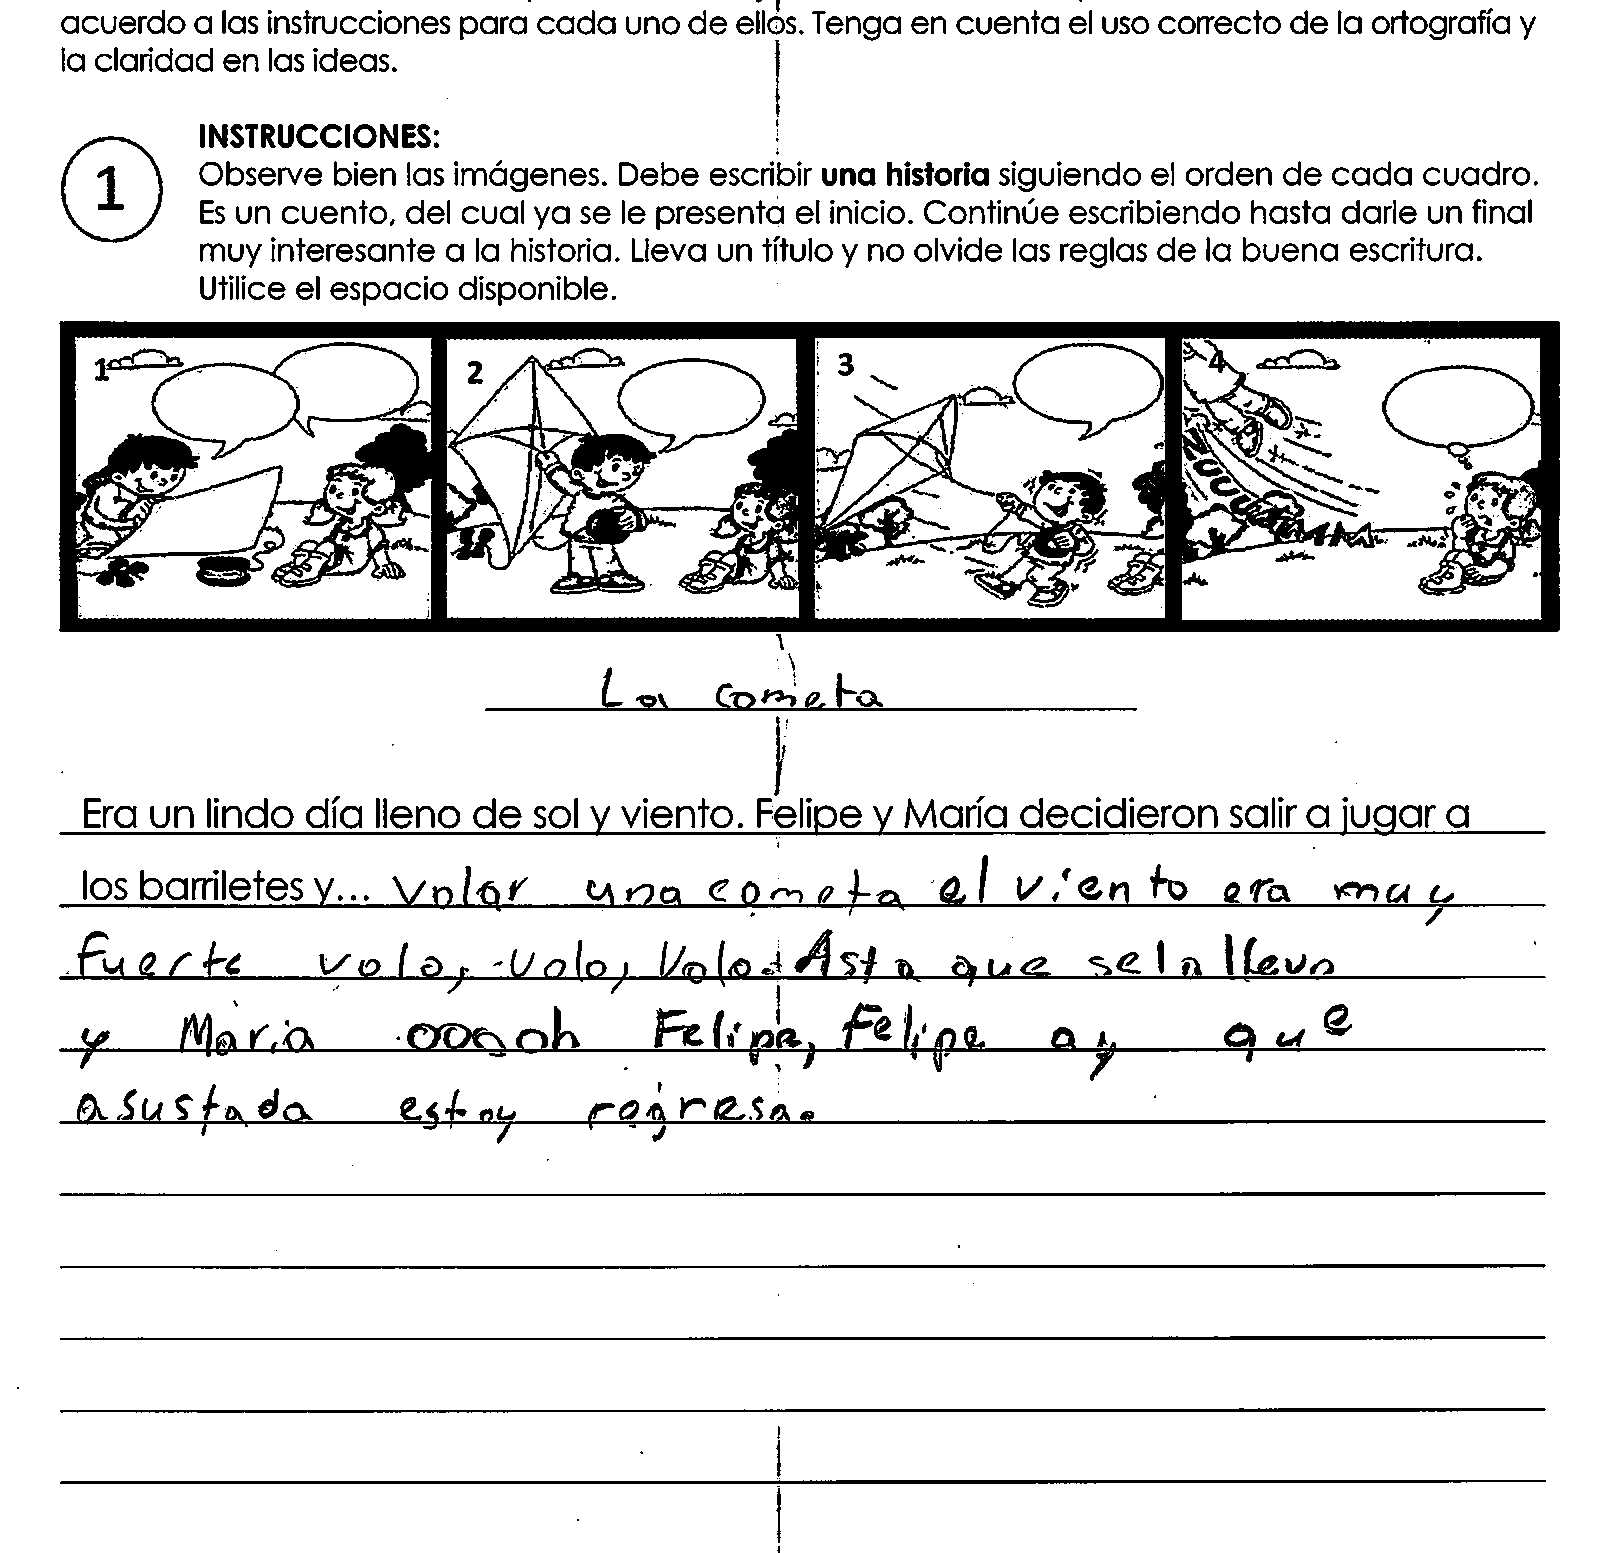 acuerdo a las instrucciones para cada uno de ellos. Tenga en cuenta el uso correcto de la ortografía y
la claridad en las ideas.
1
INSTRUCCIONES:
Observe bien las imágenes. Debe escribir una historia siguiendo el orden de cada cuadro.
Es un cuento, del cual ya se le presenta el inicio. Continúe escribiendo hasta darle un final
muy interesante a la historia. Lleva un título y no olvide las reglas de la buena escritura.
Utilice el espacio disponible.
1 2 3 4
La cometa
Era un lindo día lleno de sol y viento. Felipe y María decidieron salir a jugar a
los barriletes y... volar una cometa el viento era muy
fuerte volo, volo, volo. Asta que sela lleva
y Maria ooooh Felipe, Felipe ay que
asustada estoy regresa.